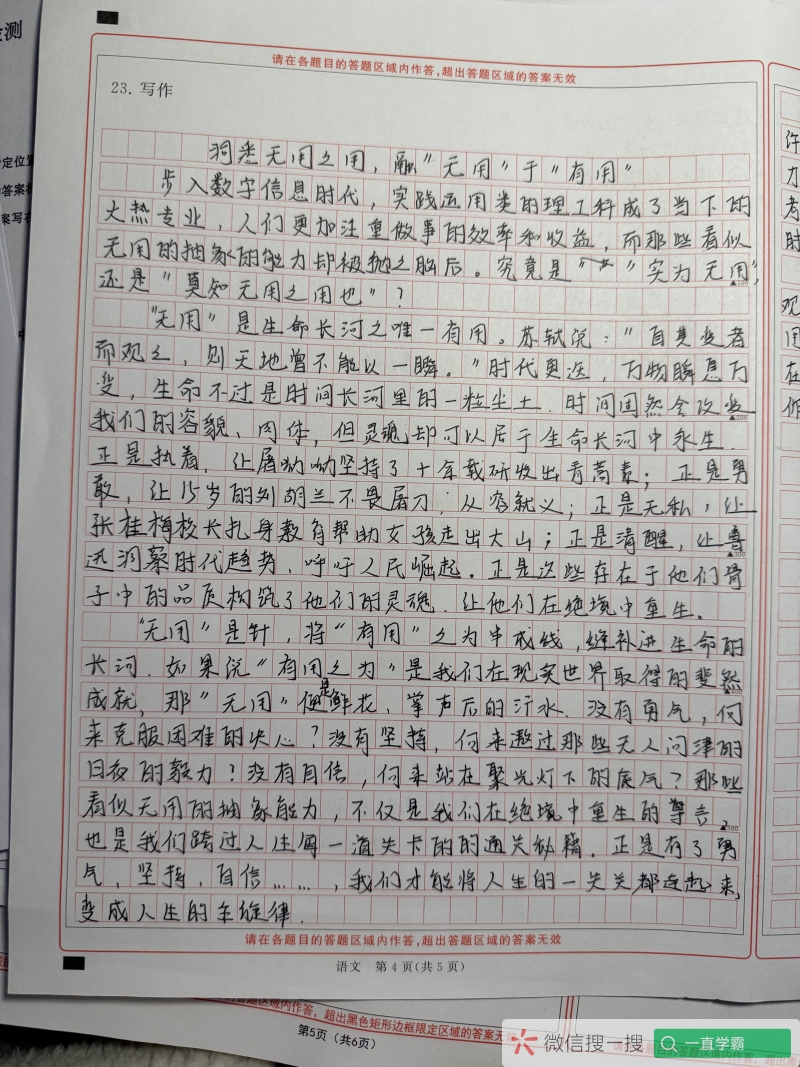 检测
定位置
答案框
案写在
请在各题目的答题区域内作答,超出答题区域的答案无效
23. 写作
洞悉无用之用，融“无用”于“有用”
步入数字信息时代，实践运用类的理工科成了当下的
大热专业，人们更加注重做事的效率和收益，而那些看似
无用的抽象的能力却被抛之脑后。究竟是“ ”实为无用”，
还是“莫知无用之用也”？
▲100
“无用”是生命长河之唯一有用。苏轼说：“自其变者
而观之，则天地曾不能以一瞬。”时代更迭，万物瞬息万
变，生命不过是时间长河里的一粒尘土.时间固然会改变
▲200
我们的容貌、肉体，但灵魂却可以居于生命长河中永生.
正是执着，让屠呦呦坚持了十年载研发出青蒿素；正是勇
敢，让15岁的刘胡兰不畏屠刀，从容就义；正是无私，让
张桂梅校长扎身教育帮助女孩走出大山；正是清醒，让鲁
▲300
迅洞察时代趋势，呼吁人民崛起.正是这些存在于他们骨
子中的品质构筑了他们的灵魂.让他们在绝境中重生。
“无用”是针，将“有用”之为串成线，缝补进生命的
长河.如果说“有用之为”是我们在现实世界取得的斐然
成就，那“无用”便是鲜花、掌声后的汗水.没有勇气，何
来克服困难的决心？没有坚持，何来熬过那些无人问津的
日夜的毅力？没有自信，何来站在聚光灯下的底气？那些
看似无用的抽象能力，不仅是我们在绝境中重生的 ，
▲500
也是我们跨过人生每一道关卡的的通关秘籍.正是有了勇
气，坚持，自信……，我们才能将人生的一关关都连起来，
变成人生的主旋律.
请在各题目的答题区域内作答,超出答题区域的答案无效
语文 第4页(共5页)
许
力
者
时
观
用
在
你
答题区域内作答，超出黑色矩形边框限定区域的答案无效
第5页（共6页）
微信搜一搜
一直学霸